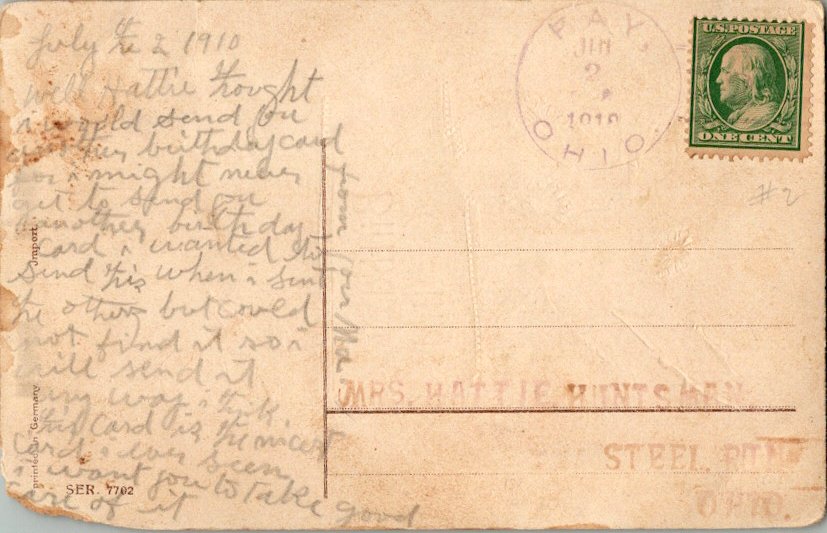 July the 2 1910
well Hattie thought
i would send you
another birthday card
for i might never
get to send you
another birthday
card i wanted to
send this when i sent
the others but could
not find it so i
will send it
any way i think
this card is the nicest
card i ever seen
i want you to take good
care of it
from your Ma
Import.
printed in Germany
SER. 7702
PAY
2
1910
OHIO
U.S. POSTAGE
ONE CENT
#2
MRS. HATTIE HUNTSMAN
STEEL RUN
OHIO.